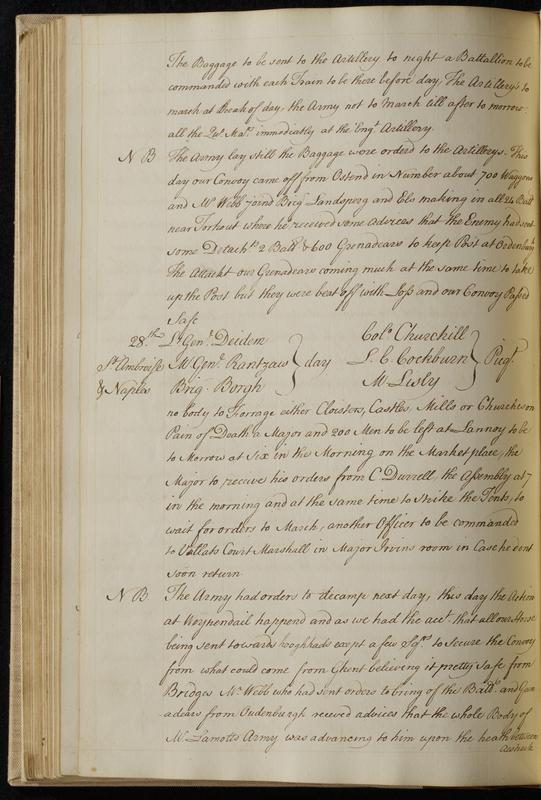 The Baggage to be sent to the Artillery to night a Battallion to be
commanded with each Train to be there before day, The Artillerys to
march at Break of day, the Army not to March till after to morrow
all the Qrs Mars. immediatly at the Engt. Artillery.
N B The Army lay still the Baggage were orderd to the Artillerys. This
day our Convoy came off from Ostend in Number about 700 Waggons
and Mr Webb joind Brigr Landsperg and Els making in all 24 Batt
near Torhout where he received some advices that the Enemy had sent
some Detachts 2 Batt & 600 Grenadears to keep Post at Oudenburgh
The Attackt our Grenadears coming much at the same time to take
up the Post but they were beat off with Loss and our Convoy Passed
Safe
28th Lt Gent. Deidem Colo. Churchill
St. Ambroise M Genl. Rantzaw day L. C Cockburn Piqt.
& Naples Brig. Borgh M Lesly
no body to Forrage either Cloisters, Castles, Mills or Churches on
Pain of Death a Major and 200 Men to be left at Lannoy to be
to Morrow at Six in the Morning on the Market place, the
Major to receive his orders from C Durrell, the Assembly at 7
in the morning and at the same time to strike the Tents, to
wait for orders to March, another Officer to be commanded
to Court Marshall in Major Irvins room in Case he dont
soon return
N B The Army had orders to decamp next day, this day the Action
at Weynendall happend and as we had the acct. that all our Horse
being sent towards except a few Sqrs to Secure the Convoy
from what could come from Ghent believing it pretty Safe from
Bridges Mr Webb who had sent orders to bring of the Batts. and Gran
adears from Oudenburgh received advices that the whole Body of
Mr. Lamotts Army was advancing to him upon the heath between